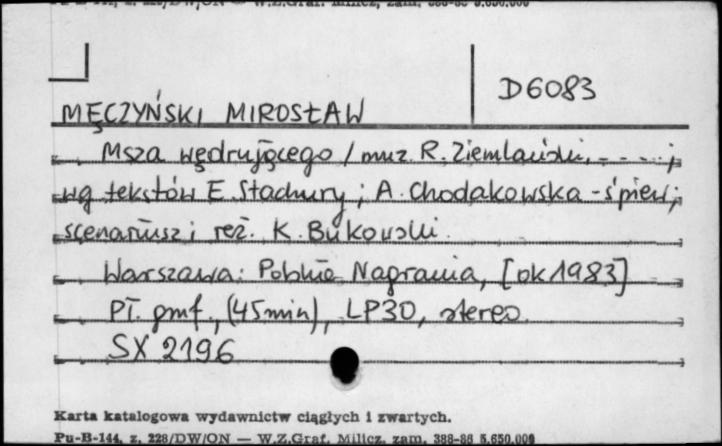 D6083
MĘCZYŃSKI MIROSŁAW
Msza wędrującego / muz. R. Ziemlański, - - - ;
wg tekstów E. Stachury ; A. Chodakowska - śpiew ;
scenariusz i reż. K. Bukowski.
Warszawa : Polskie Nagrania, [ok 1983]
Pł. gmf., (45 min), LP30, stereo.
SX 2196
Karta katalogowa wydawnictw ciągłych i zwartych.
Pu-B-144, z. 228/DW/ON — W.Z.Graf. Milicz, zam. 388-86 5.650.000